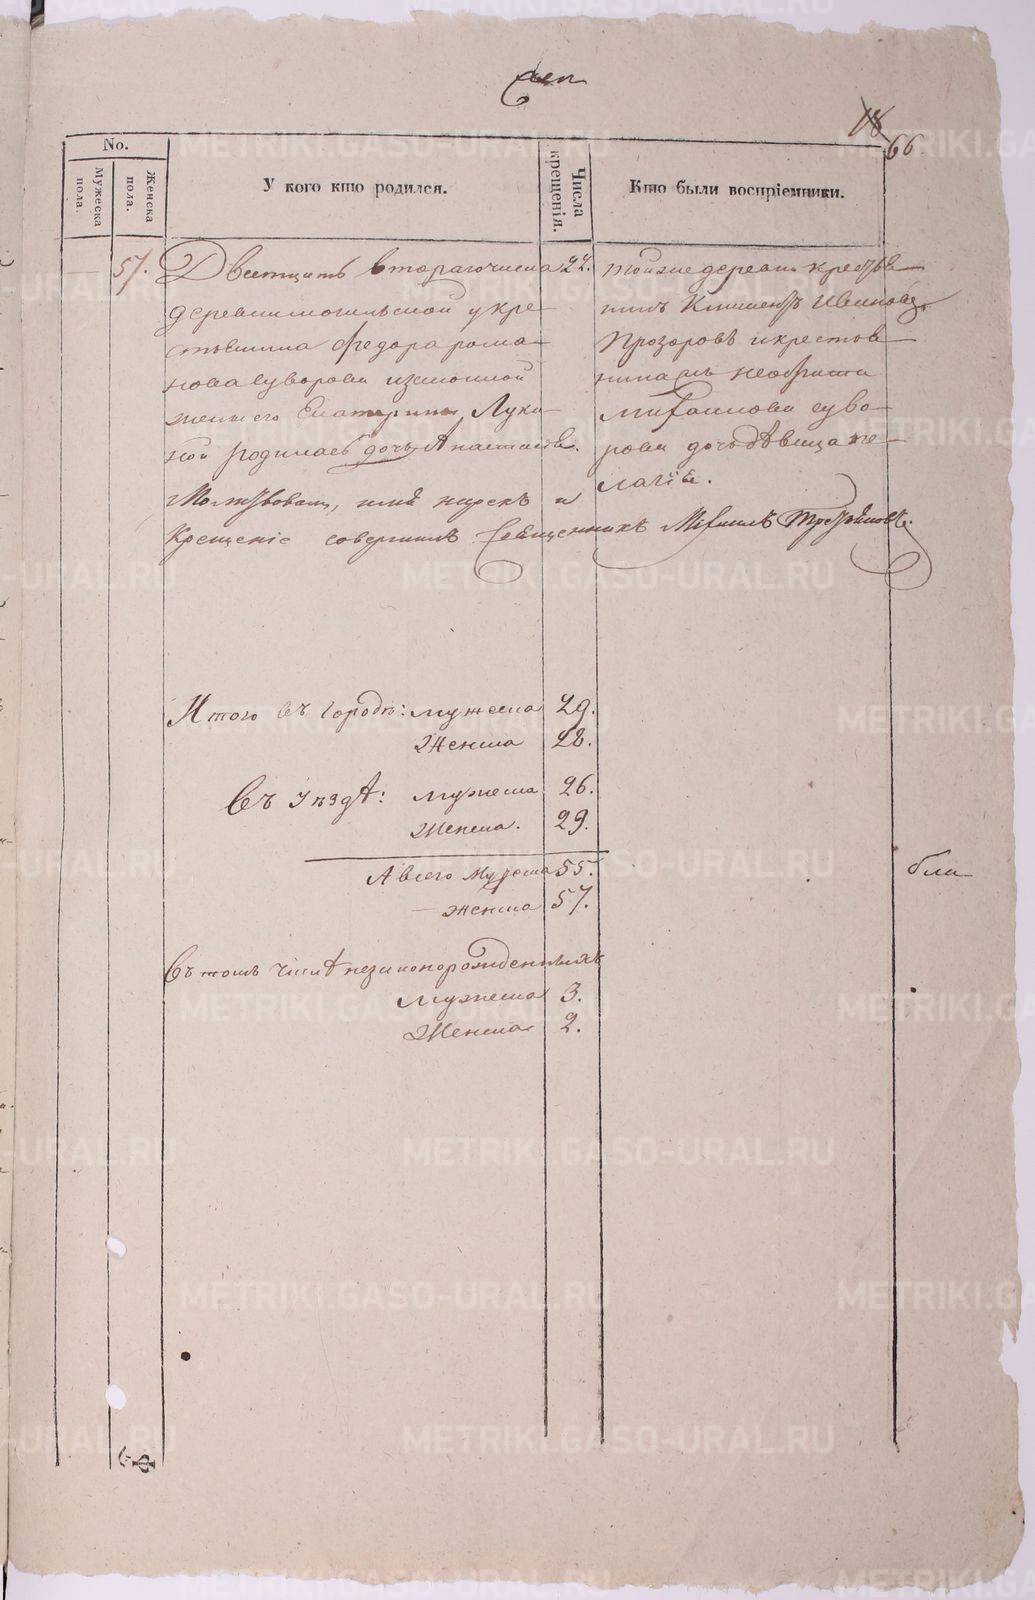 18
66.
No.
Мужеска пола.
Женска пола.
У кого кто родился.
Числа крещенія.
Кто были воспріемники.
57.
Дватцать втарагочисла 22.
деревни у кре-
стьянина Федора рома-
нова Суворова изаконной
жены его Екатерины Луки-
ной родилась дочь Анастасія.
Молитвовалъ, имя нарекъ и
Крещеніе совершилъ Священникъ Михаилъ
тойже деревни крестья-
нинъ Климентъ Ивановъ
Прозоровъ икрестья-
нина
Михаилова суво-
рова дочь дѣвица пе-
лагія.
Итого въ городѣ: мужеска 29.
Женска 28.
Въ уѣздѣ: мужеска 26.
Женска. 29.
А всего мужеска 55.
— женска 57.
Въ томъ числѣ незаконорожденныхъ
Мужеска 3.
Женска 2.
METRIKI.GASO-URAL.RU